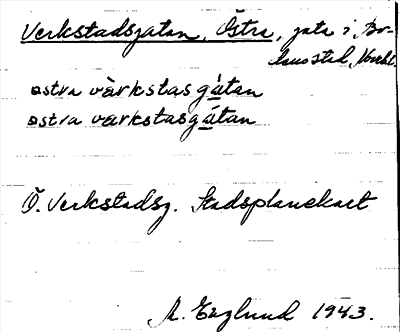 Verkstadsgatan, Östra, gata i Bo-
husstad,
östra värkstasgátan
östra värkstasgátan
Ö. Verkstadsg. Stadsplanekart
A. Englund 1943.